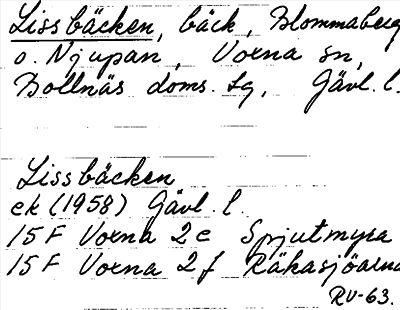 Lissbäcken, bäck, Blommaberg
o. Njupan, Voxna sn,
Bollnäs doms. sg, Gävl. l.
Lissbäcken
ek (1958) Gävl. l.
15 F Voxna 2 e Spjutmyra
15 F Voxna 2 f Räkasjöarna
RV-63.